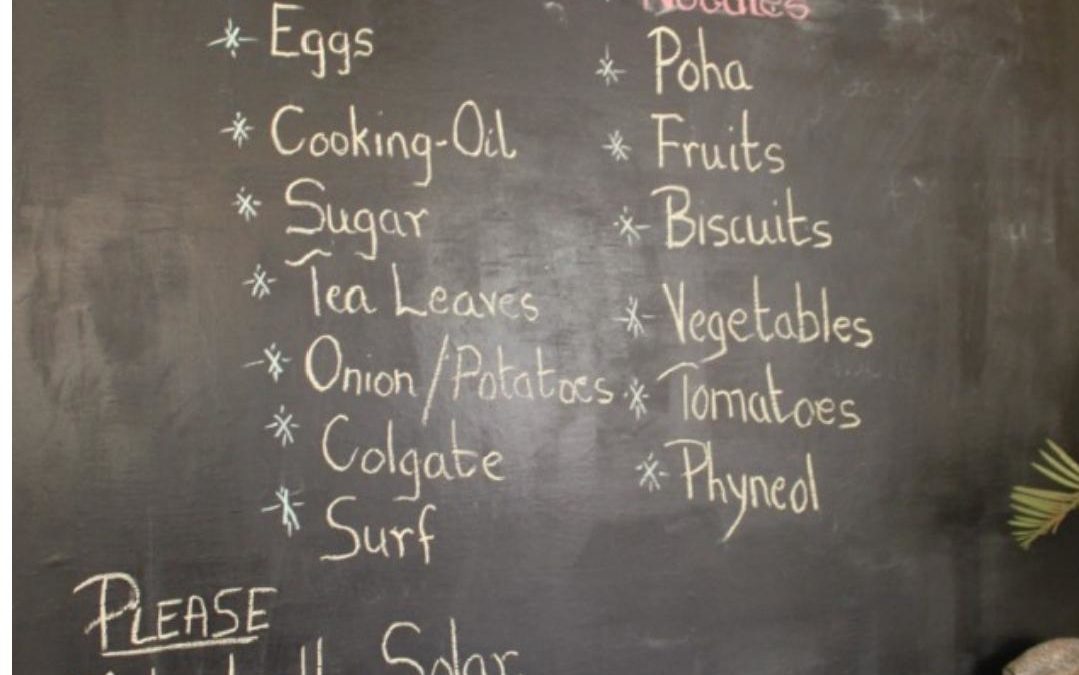 Eggs
Cooking-Oil
Sugar
Tea Leaves
Onion/Potatoes
Colgate
Surf
Noodles
Poha
Fruits
Biscuits
Vegetables
Tomatoes
Phyneol
PLEASE
Solar